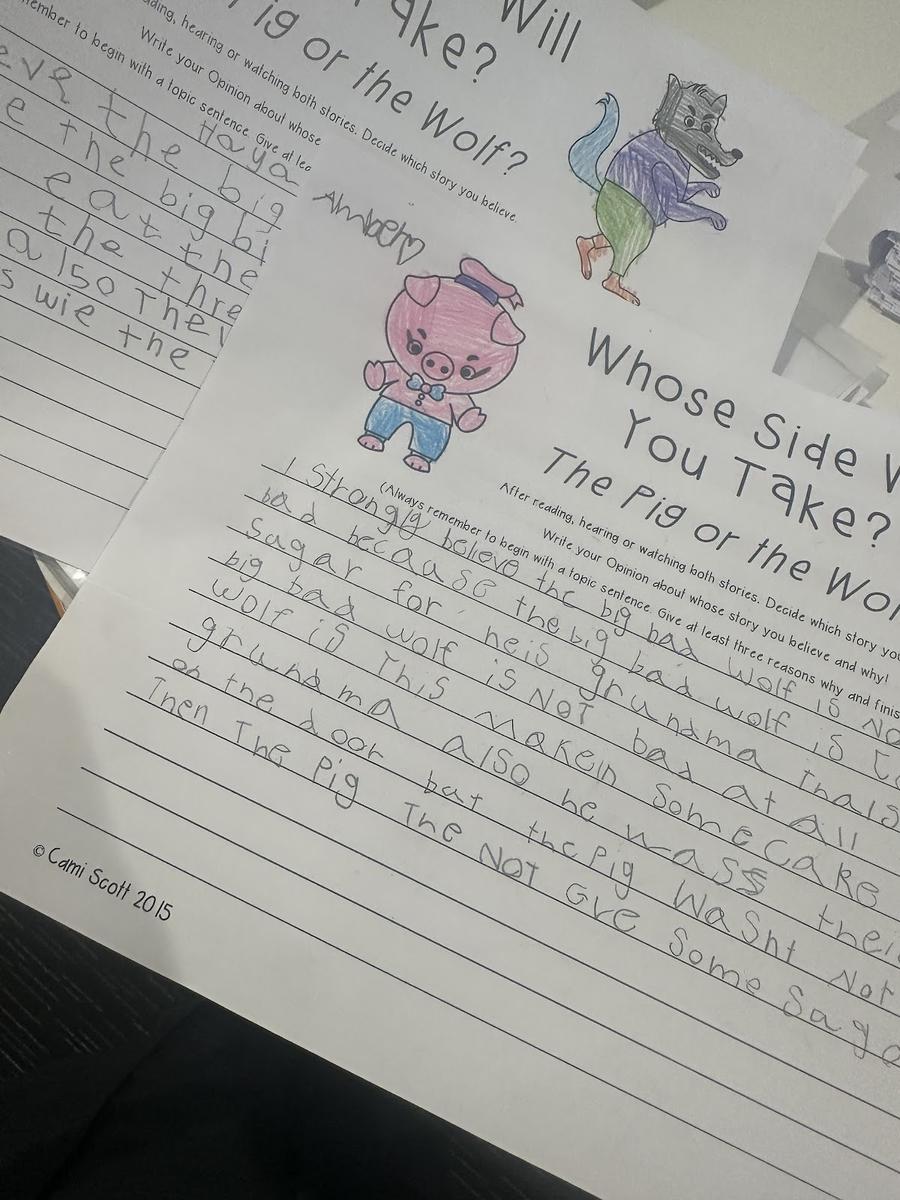 Will
Take?
Pig or the Wolf?
reading, hearing or watching both stories. Decide which story you believe.
Write your Opinion about whose
remember to begin with a topic sentence. Give at
Haya
the big
e the big
eat the
the thre
also The
s wie the
Amber
Whose Side
You Take?
The Pig or the Wo
After reading, hearing or watching both stories. Decide which story you
Write your Opinion about whose story you believe and why!
(Always remember to begin with a topic sentence. Give at least three reasons why and finis
I Strongly believe the big bad Wolf is No
bad because the big bad wolf is
Sagar for heis grundma Thals
big bad wolf is NOT bad at all
Wolf is This Makein Some Cake
grundma also he wass thei
on the door but the Pig Washt Not
Then The Pig The NOT Gre Some Saga
© Cami Scott 2015